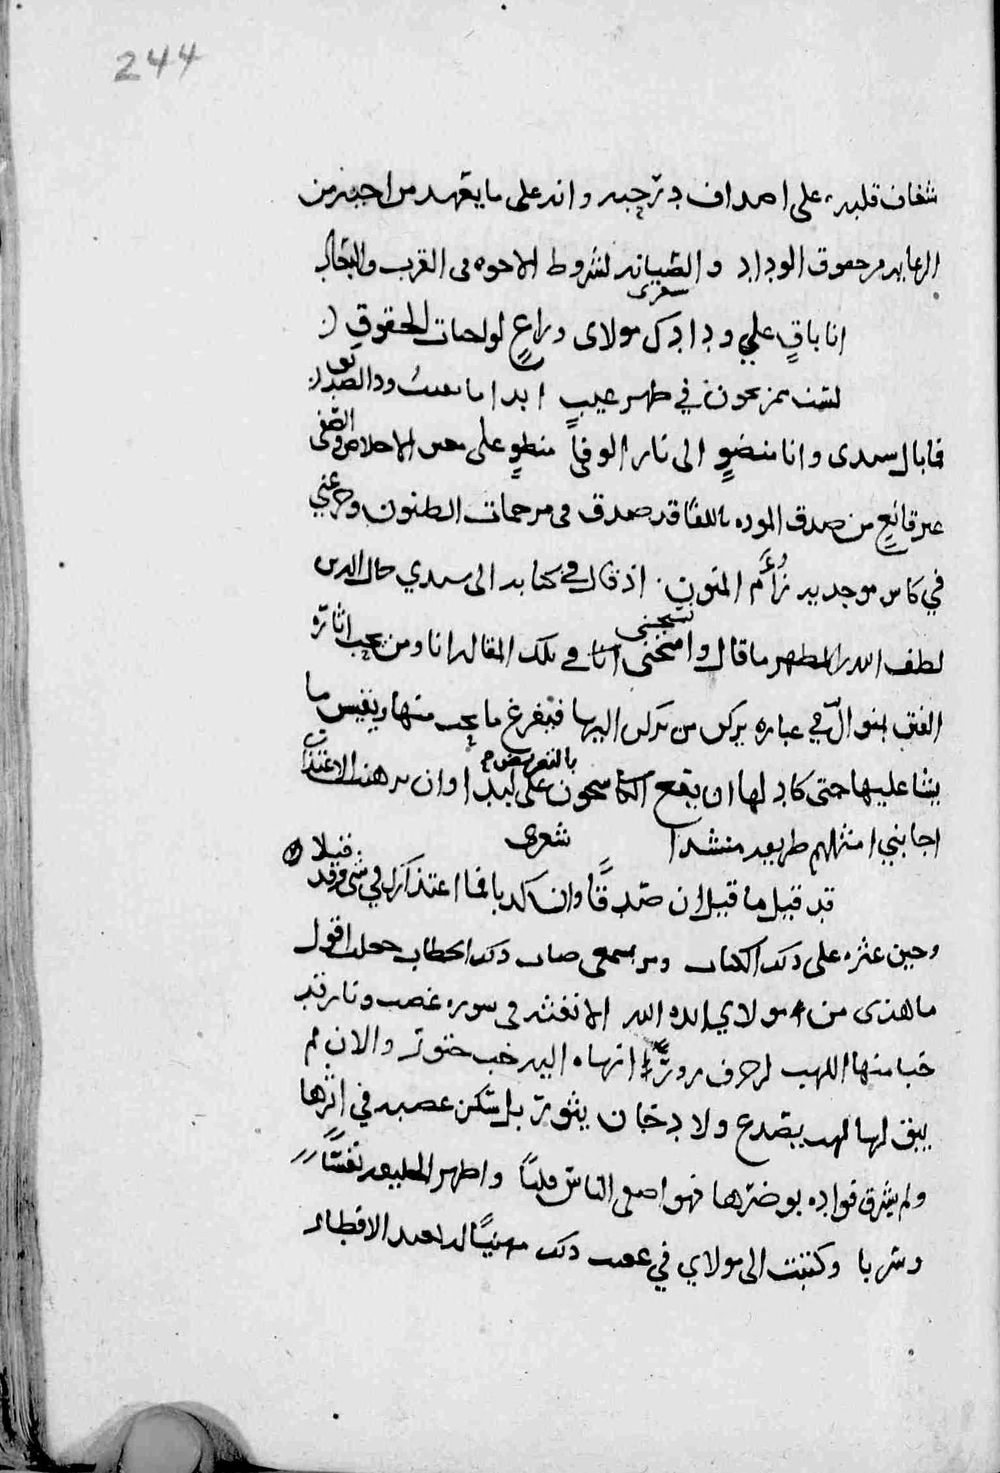 244
شغاف قلبه على اصداف درّ حبه وانه على ما يعهد من احبه من
الرعايه من حقوق الوداد والصيانه لشروط الاخوه فى القرب والبعاد
شعرى
انا باقٍ علي ودادك مولاى وراعٍ لواجبات الحقوق
لست ممن يخون في ظهر غيبٍ ابدا ما نسيت ود الصديق
فما بال سيدى وانا منضوٍ الى نار الوفا منطوٍ على محض الاخلاص والصفى
غير قانعٍ من صدق الموده باللقا قد صدق فى مرجمات الظنون وجرعني
في كاس موجديه زُأم المنون اذ قال فى كتابه الى سيدي جمال الدين
لطف الله المطهر ما قال وامتحنى انا فى تلك المقاله انا ومن يجب اثاره
الفتى بنوال في عباره يركن من يركن اليها فيفرغ ما يحب منها ويفيض ما
يشا عليها حتى كاد لها ان يقع الكاشحون بالتعريض على لبدا وان هذا الاعتذار
اجابني امثلهم طريقه منشدا شعرى
قد قيل ما قيل ان صدقًا وان كذبا فما اعتذارك في شى وقد قيلا
وحين عثره على ذلك الكتاب ومر بسمعى ذلك الخطاب جعلت اقول
ما هذى من مولاي ايده الله الا نفثه فى سوره غضب ونار قد
خبا منها اللهب لحرف مزوّر انهاه اليه خب ختور والان لم
يبق لها لهب يصدع ولا دخان يثور بل سكن غضبه في اثرها
ولم يشرق فواده بوضرها فهو اصفى الناس قلبًا واطهر الخليقه نفسًا
وشربا وكتبت الى مولاي في عقب ذلك مهنيًا له بعيد الافطار